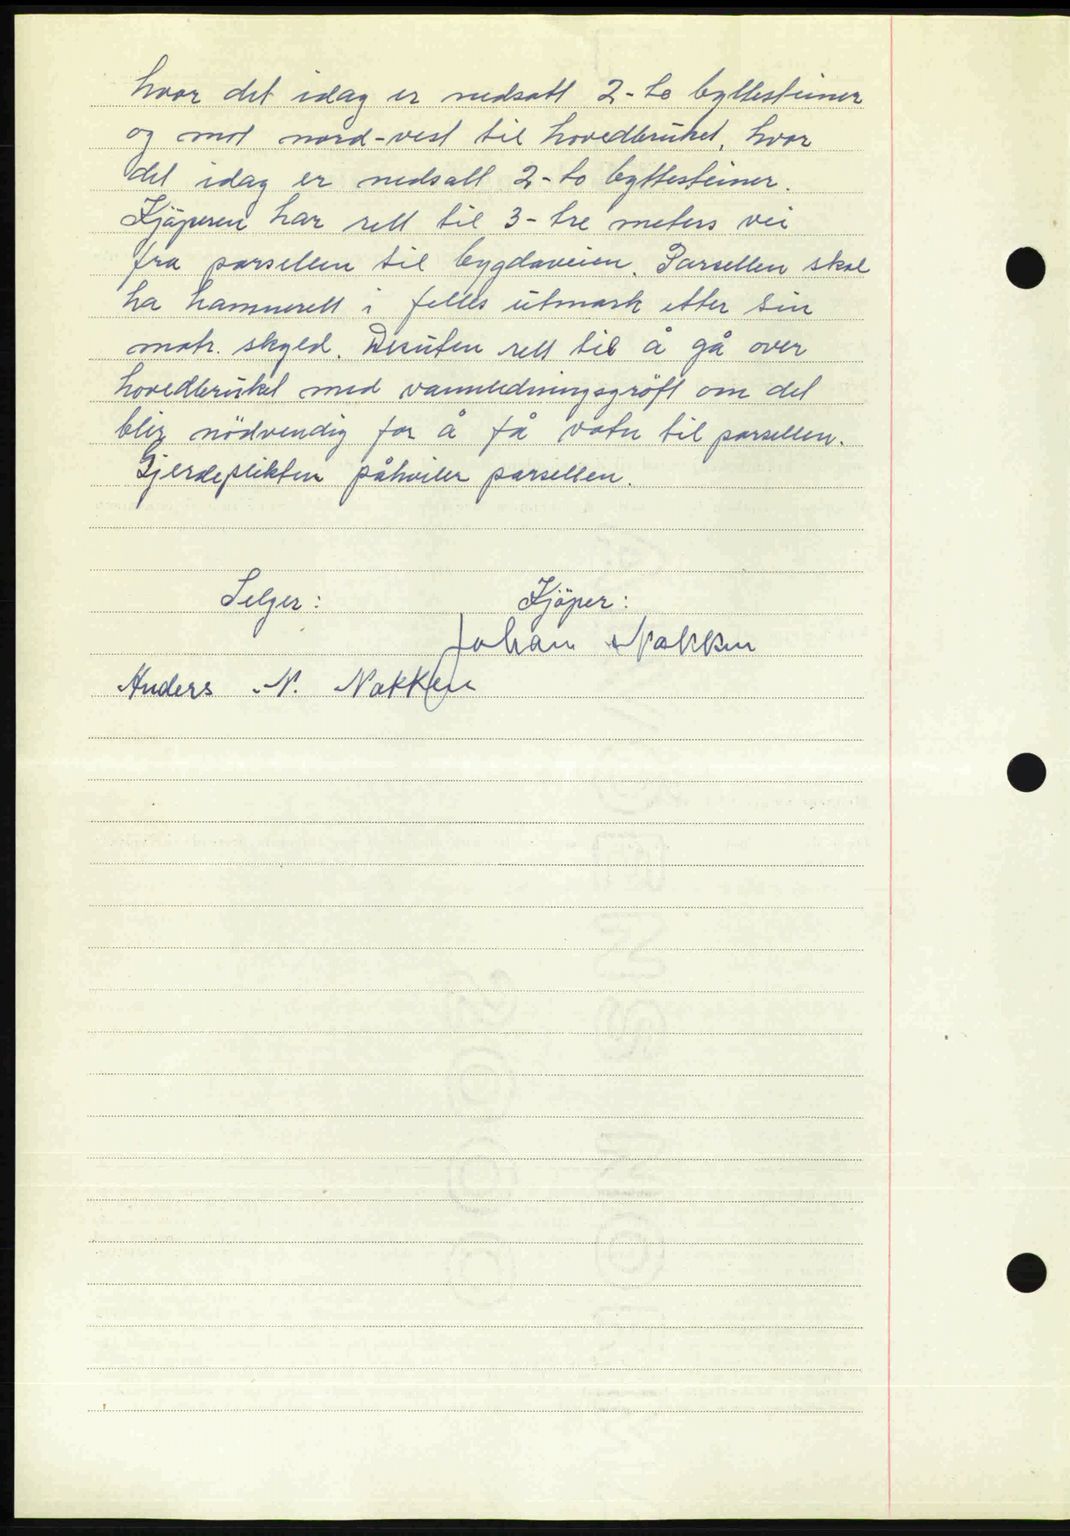 hvor det idag er nedsatt 2-to byttesteiner
og mot nord-vest til hovedbruket, hvor
det idag er nedsatt 2-to byttesteiner.
Kjöperen har rett til 3-tre meters vei
fra parsellen til bygdaveien. Parsellen skal
ha hamnerett i felles utmark etter sin
matr. skyld. Desuten rett til å gå over
hovedbruket med vannledningsgröft om det
blir nödvendig for å få vatn til parsellen.
Gjerdeplikten påhviler parsellen.
Selger: Kjöper:
Johan Nakken
Anders N. Nakken